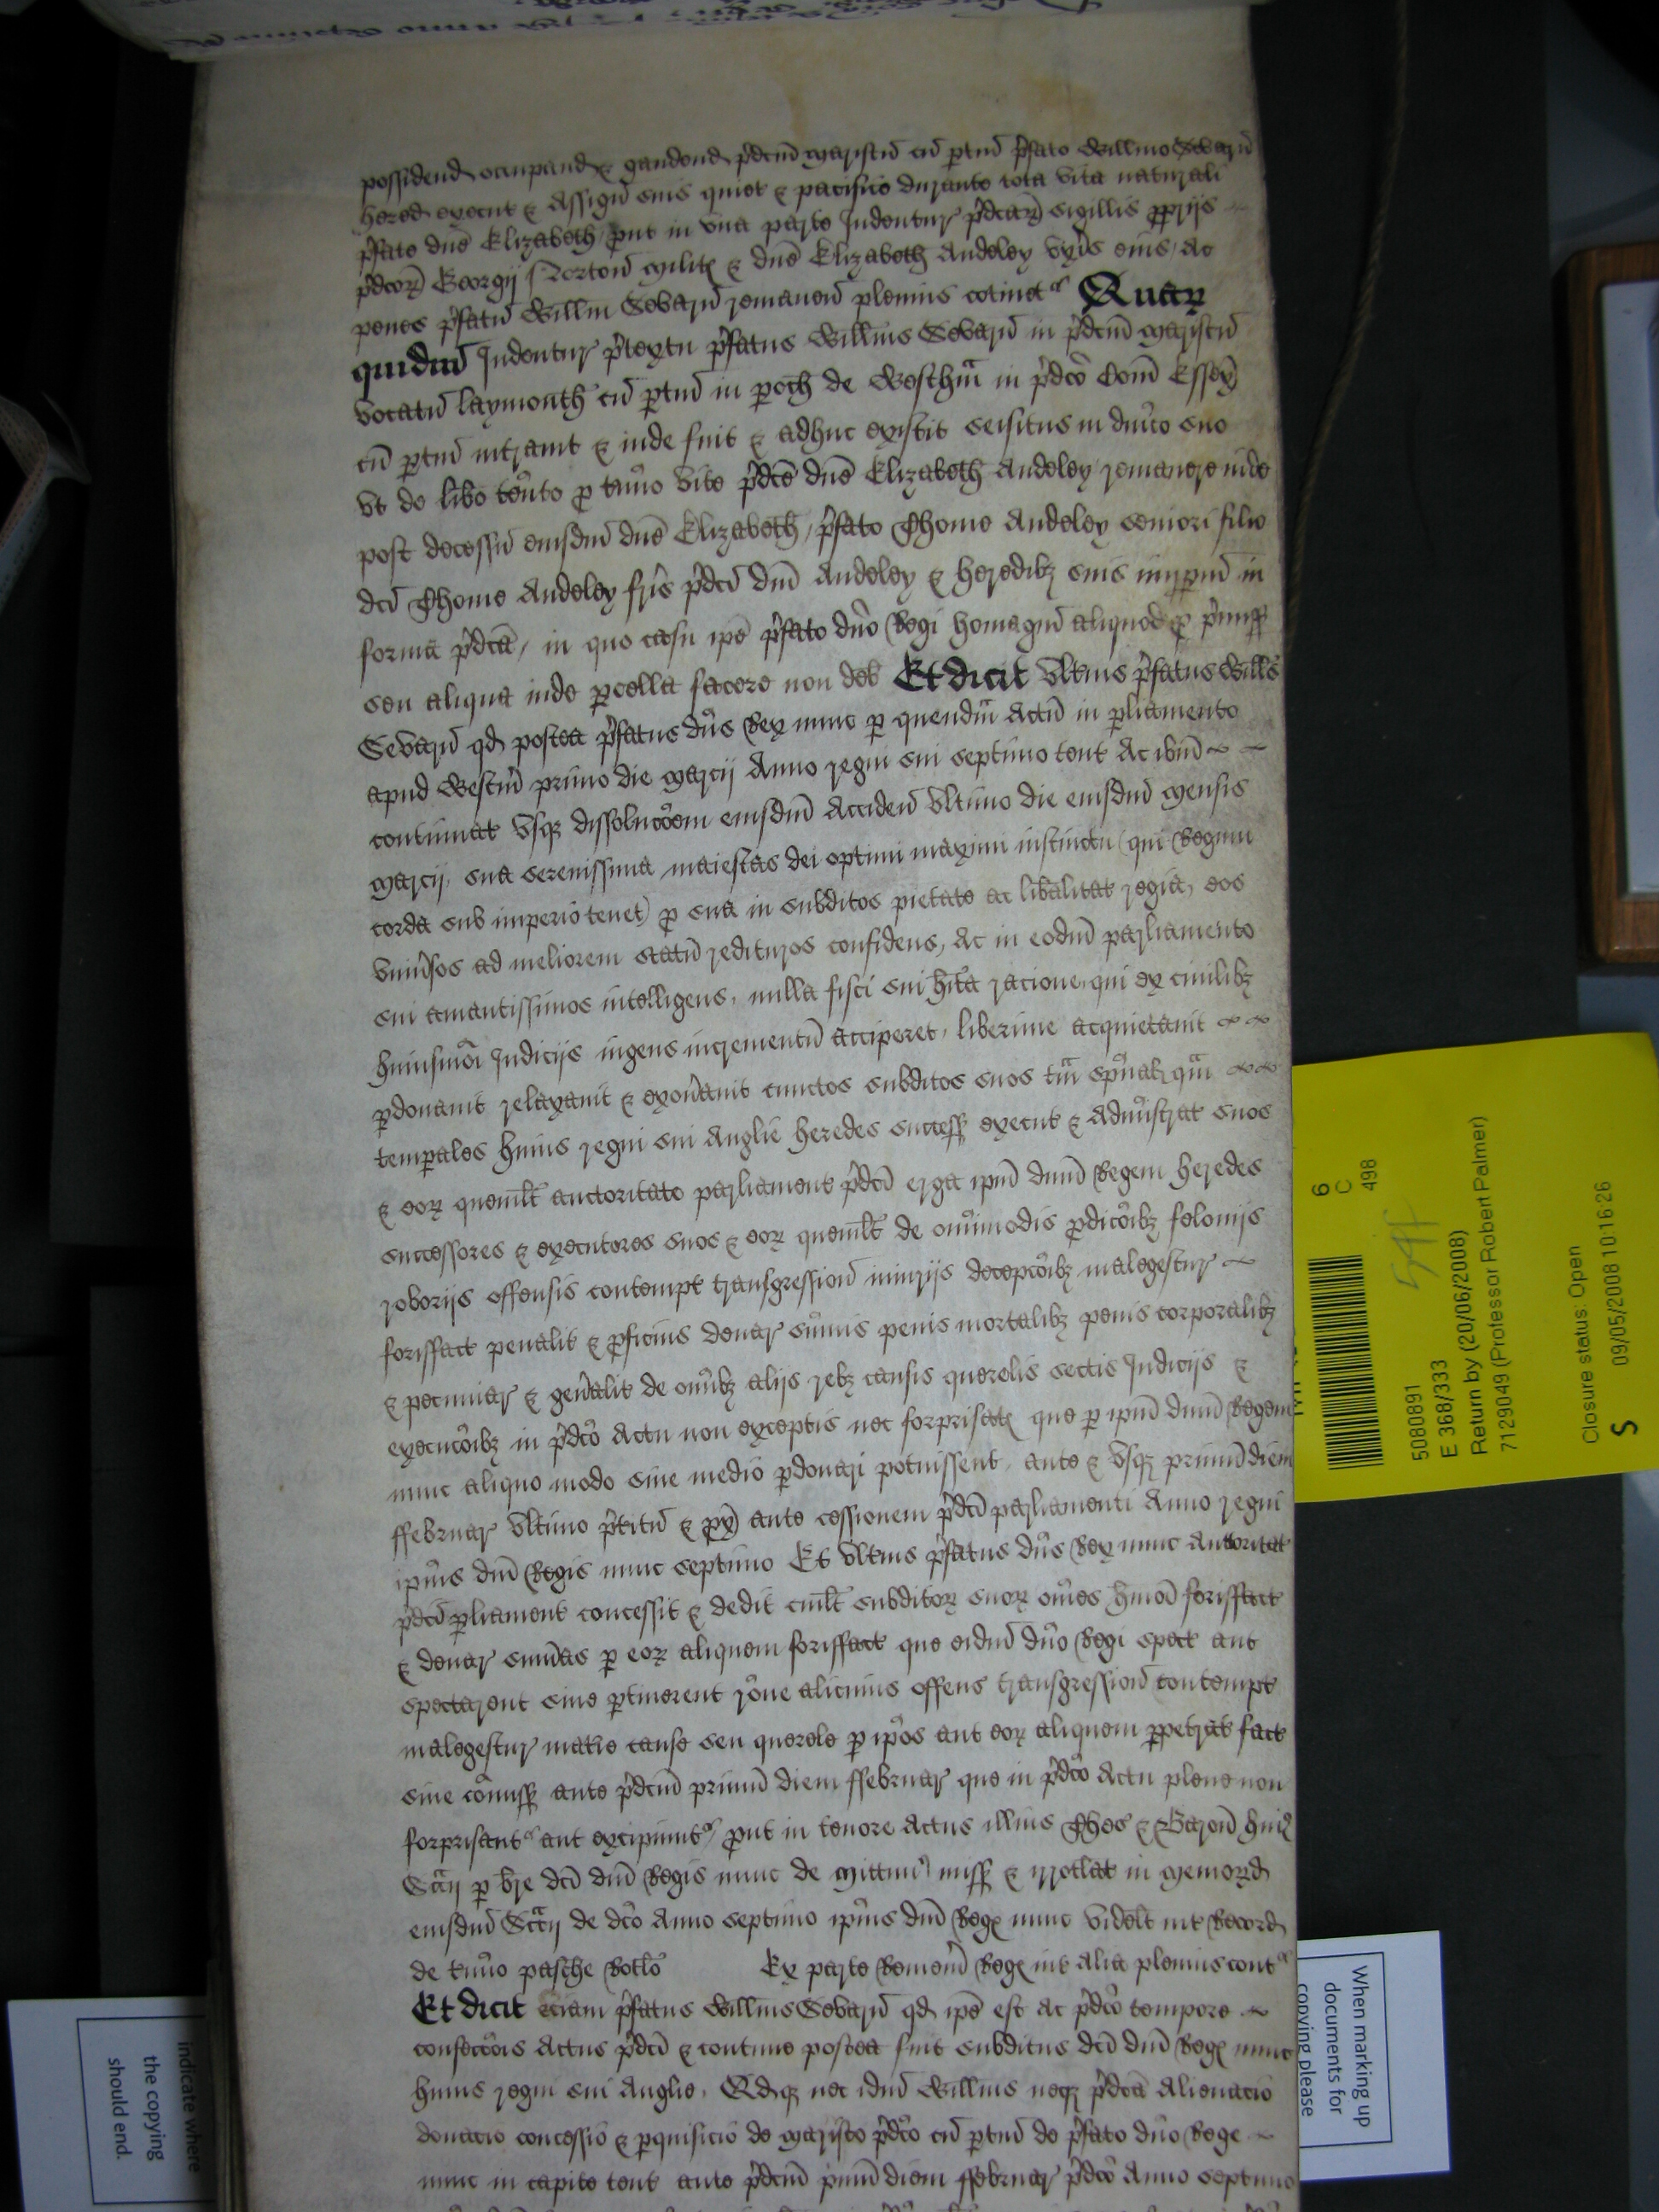 possidend occupand & gaudend p̄dcm̄ Mariscū cū ptin̄ p̄fato Willmo Sewarū
hered execut & Assign̄ suis quiet & pacifice durante tota vita naturali
p̄fate dn̄e Elizabeth put in vna parte Indentur p̄dcar̄ sigillis ppriis
p̄dcor̄ Georgij Norton̄ Milit & dn̄e Elizabeth Audeley vxis eius Ac
penes p̄fatū Willm̄ Sewarū remanen̄ plenius cotinet Quar
quidm̄ Indentur p̄textu p̄fatus Willm̄s Sewarū in p̄dcm̄ Mariscū
vocatū laymouth cū ptin̄ in poch de Westhm̄ in p̄dco Com̄ Essex
cū ptin̄ intrauit & inde fuit & adhuc existit seisitus in dn̄ico suo
vt de libo ten̄to p tm̄io vite p̄dce dn̄e Elizabeth Audeley remanere inde
post decessū eiusdm̄ dn̄e Elizabeth p̄fato Thome Audeley seniori filio
dci Thome Audeley fr̄is p̄dci dn̄i Audeley & heredibz suis imppm̄ in
forma p̄dca, in quo casu ip̄e p̄fato dn̄o Regi homagiū aliquod p p̄miss
seu aliqua inde pcella facere non deb Et dicit vlt̄ius p̄fatus Willm̄s
Sewarū qd postea p̄fatus dn̄s Rex nunc p quendm̄ Actū in pliamento
apud Westm̄ primo die Marcij Anno regni sui septimo tent Ac ib̄m
continuat vsqz dissolucōem eiusdm̄ Acciden̄ vltimo die eiusdm̄ Mensis
Marcij, sua serenissima maiestas dei optimi maximi instinctu (qui Regum
corda sub imperio tenet) p sua in subditos pietate ac lib̄alitat regia, eos
vniu̅sos ad meliorem statū redituros confidens, Ac in eodm̄ parliamento
sui amantissimos intelligens, nulla fisci sui hita racione qui ex ciuilibz
huiusmōi Judicijs ingens incrementū acciperet, liberime acquietauit
pdonauit relaxauit & exon̄auit cunctos subditos suos tm̄ sp̄ual qm̄
temp̄ales huius regni sui Anglie heredes success execut & Adm̄istrat suos
& eor quem̄lt auctoritate parliament p̄dci erga ip̄m dn̄m Regem heredes
successores & executores suos & eor quem̄lt de om̄imodis p̄dicōibz felonijs
roborijs offensis contempt transgression̄ iniurijs decepcōibz malegestur
forisfact penalit & pficuis denar sum̄is penis mortalibz penis corporalibz
& pecuniar & gen̄alit de om̄ibz alijs rebz causis querelis sectis Judicijs &
execucōibz in p̄dco Actu non exceptis nec forprisat que p ip̄m dn̄m Regem
nunc aliquo modo sine medio pdonari potuissent, ante & vsqz primū diem
ffebruar vltimo p̄titū & px̄ ante cessionem p̄dci parliamenti Anno regni
ip̄ius dn̄i Regis nunc septimo Et vlt̄ius p̄fatus dn̄s Rex nunc Auctoritat
p̄dci pliament concessit & dedit cuil̄t subditor suor om̄es hm̄oi forisfact
& denar sum̄as p eor aliquem forisfact que eidm̄ dn̄o Regi spect aut
spectarent siue ptinerent rōne alicuius offens transgression̄ contempt
malegestur matie cause seu querele p ip̄os aut eor aliquem ppetrat fact
siue com̄iss ante p̄dcm̄ primū diem ffebruar que in p̄dco Actu plene non
forprisant aut excipiunt put in tenore Actus illius Thes & Baron̄ hui
Scc̄ij p bre dci dn̄i Regis nunc de Mittim miss & irrotlat in Memorand
eiusdm̄ Scc̄ij de dco Anno septimo ip̄ius dn̄i Reg nunc videlt int Record
de tm̄io pasche Rotlo Ex parte Rememr̄ Reg int alia plenius cont
Et dicit eciam p̄fatus Willm̄s Sewarū qd ip̄e est Ac p̄dco tempore
confeccōis Actus p̄dci & continue postea fuit subditus dci dn̄i Reg nunc
huius regni sui Anglie, Qdqz nec idm̄ Willm̄s neqz p̄dca Alienacio
donacio concessio & pquisicio de Marisco p̄dco cū ptin̄ de p̄fato dn̄o Rege
nunc in capite tent ante p̄dcm̄ pimū diem ffebruar p̄dco Anno septimo
6
C
498
5080891
E 368/333
Return by (20/06/2008)
7129049 (Professor Robert Palmer)
Closure status: Open
09/05/2008 10:16:26
S
When marking up
documents for
copying please
indicate where
the copying
should end.